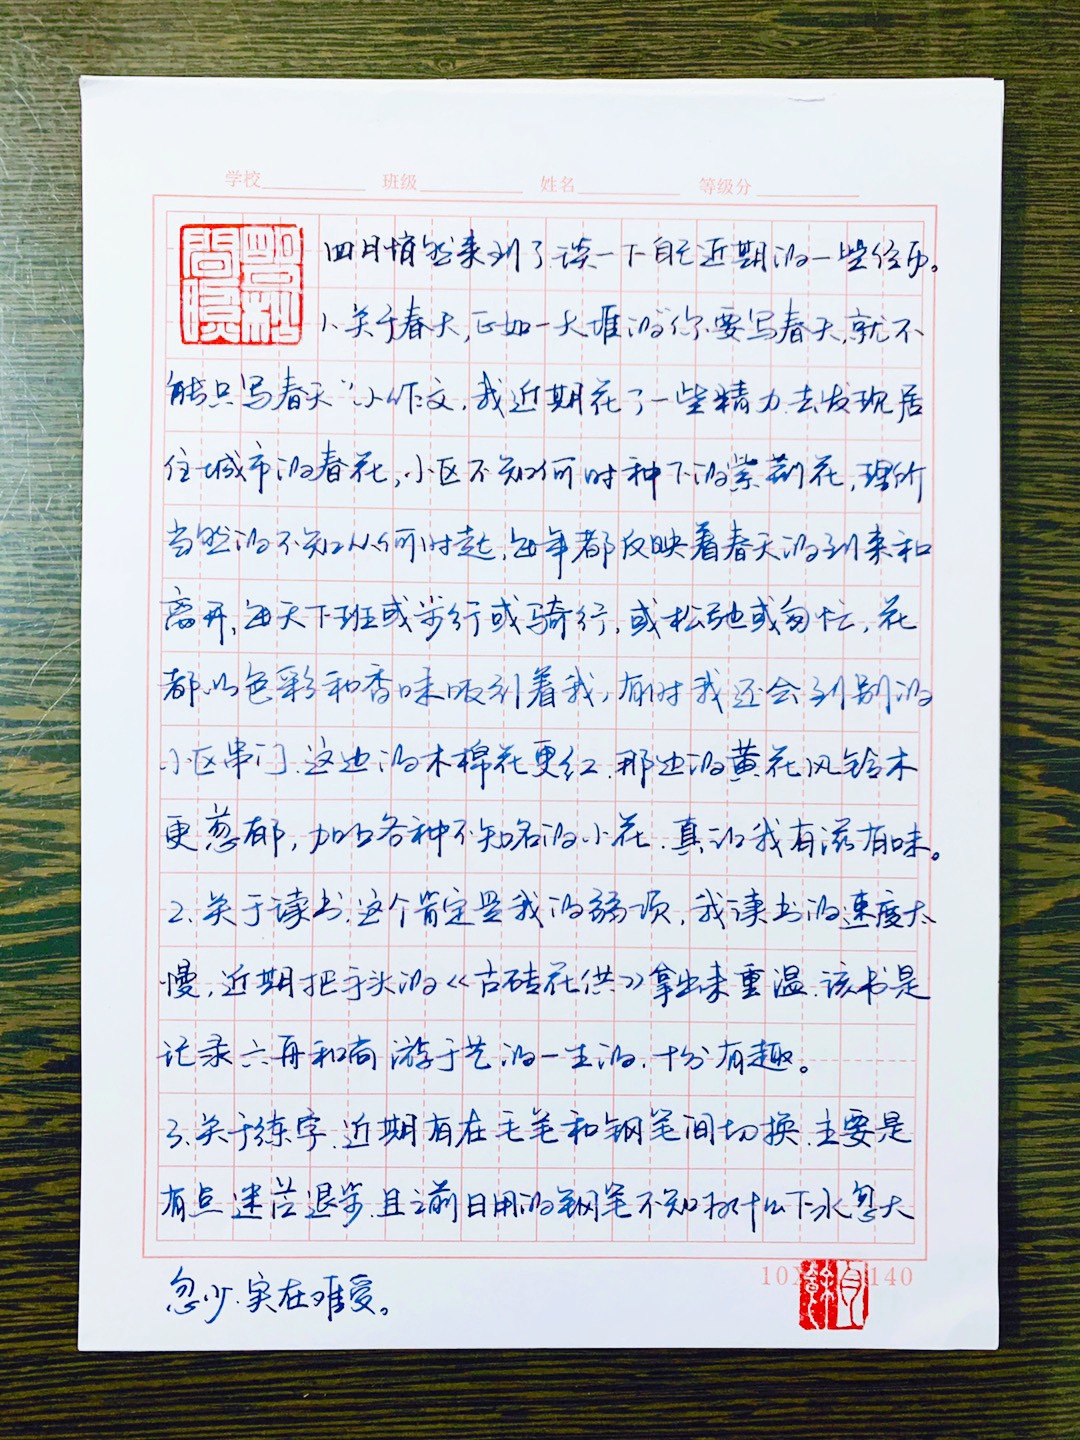 学校 班级 姓名 等级分
四月悄然来到了,谈一下自己近期的一些经历。
1、关于春天,正如一大堆的“你要写春天,就不
能只写春天”小作文,我近期花了一些精力去发现居
住城市的春花,小区不知何时种下的紫荆花,理所
当然的不知从何时起,每年都反映着春天的到来和
离开,每天下班或步行或骑行,或松弛或匆忙,花
都以色彩和香味吸引着我,有时我还会到别的
小区串门,这边的木棉花更红,那边的黄花风铃木
更葱郁,加上各种不知名的小花,真的我有滋有味。
2、关于读书,这个肯定是我的弱项,我读书的速度太
慢,近期把手头的《古砖花供》拿出来重温,该书是
记录六舟和尚游于艺的一生的,十分有趣。
3、关于练字,近期有在毛笔和钢笔间切换,主要是
有点迷茫退步,且之前日用的钢笔不知为什么下水忽大
忽少,实在难受。
140